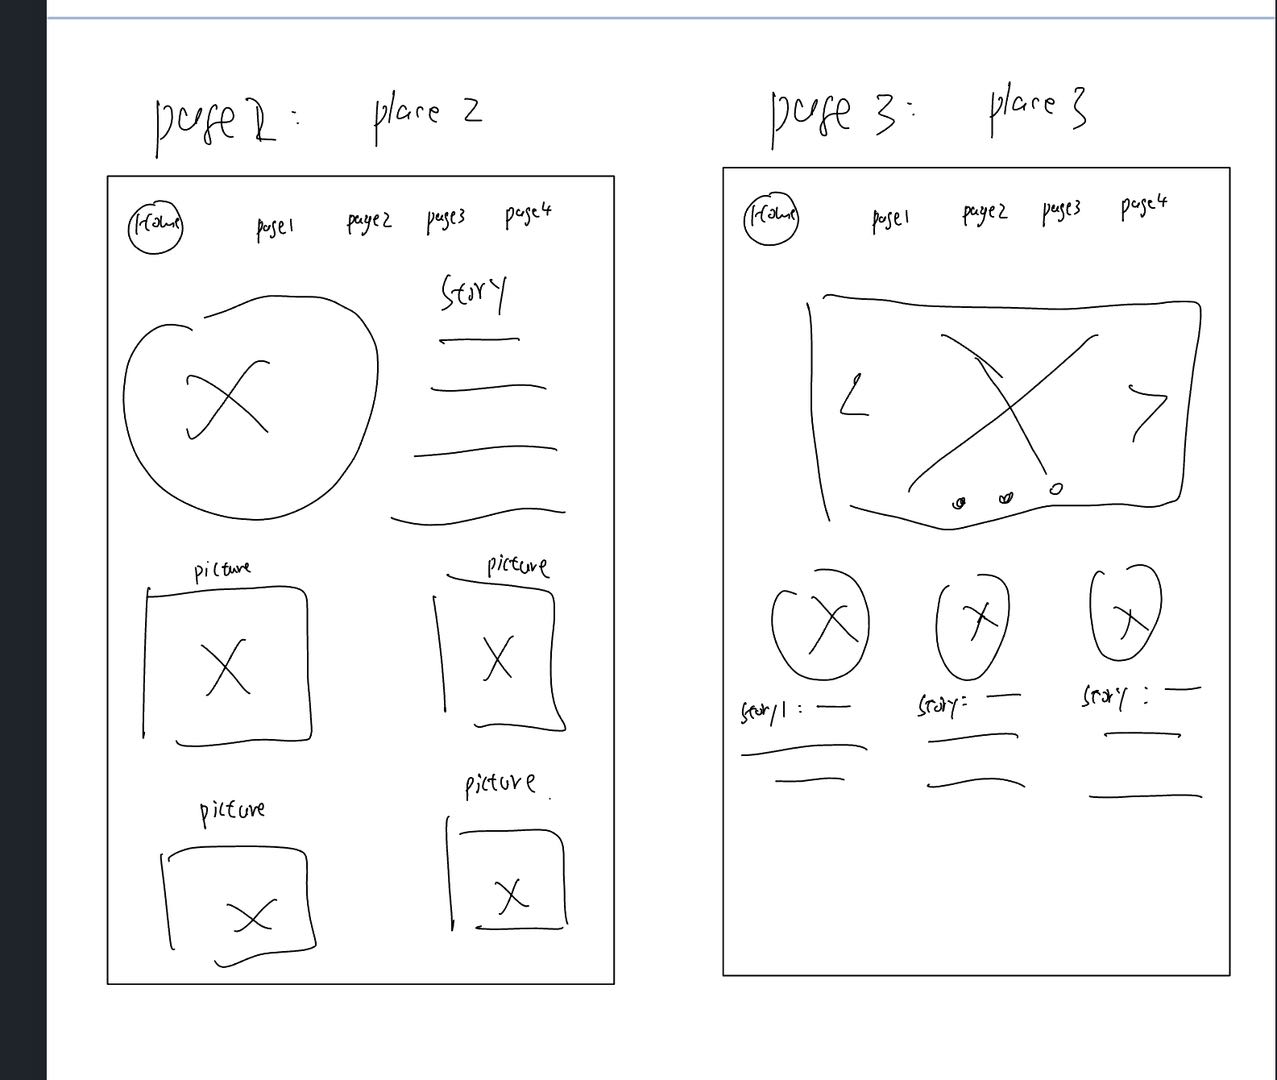 page 2: place 2
Home page1 page2 page3 page4
Story
picture picture
picture picture.
page 3: place 3
Home page1 page2 page3 page4
< >
story1:
story:
story: